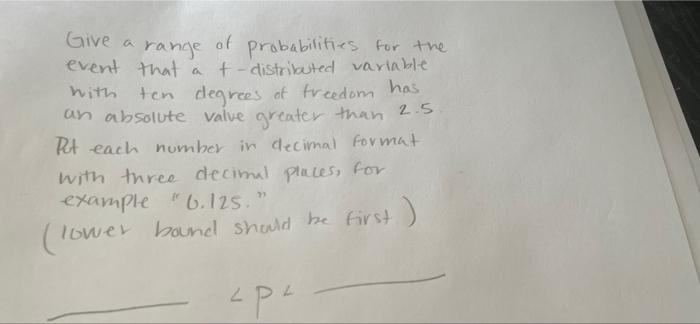 Give a range of probabilities for the
event that a t-distributed variable
with ten degrees of freedom has
an absolute value greater than 2.5.
Put each number in decimal format
with three decimal places, for
example "0.125."
(lower bound should be first)
____ < p < ____